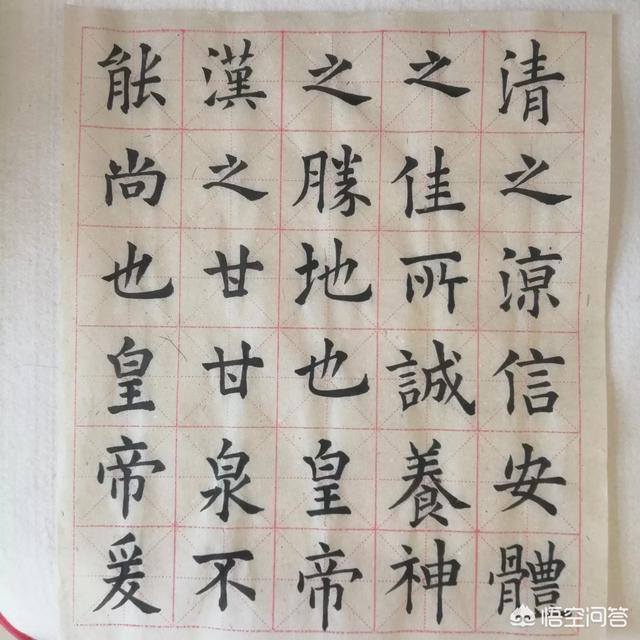 清之涼信安體
之佳所誠養神
之勝地也皇帝
漢之甘甘泉不
能尚也皇帝爰
悟空问答